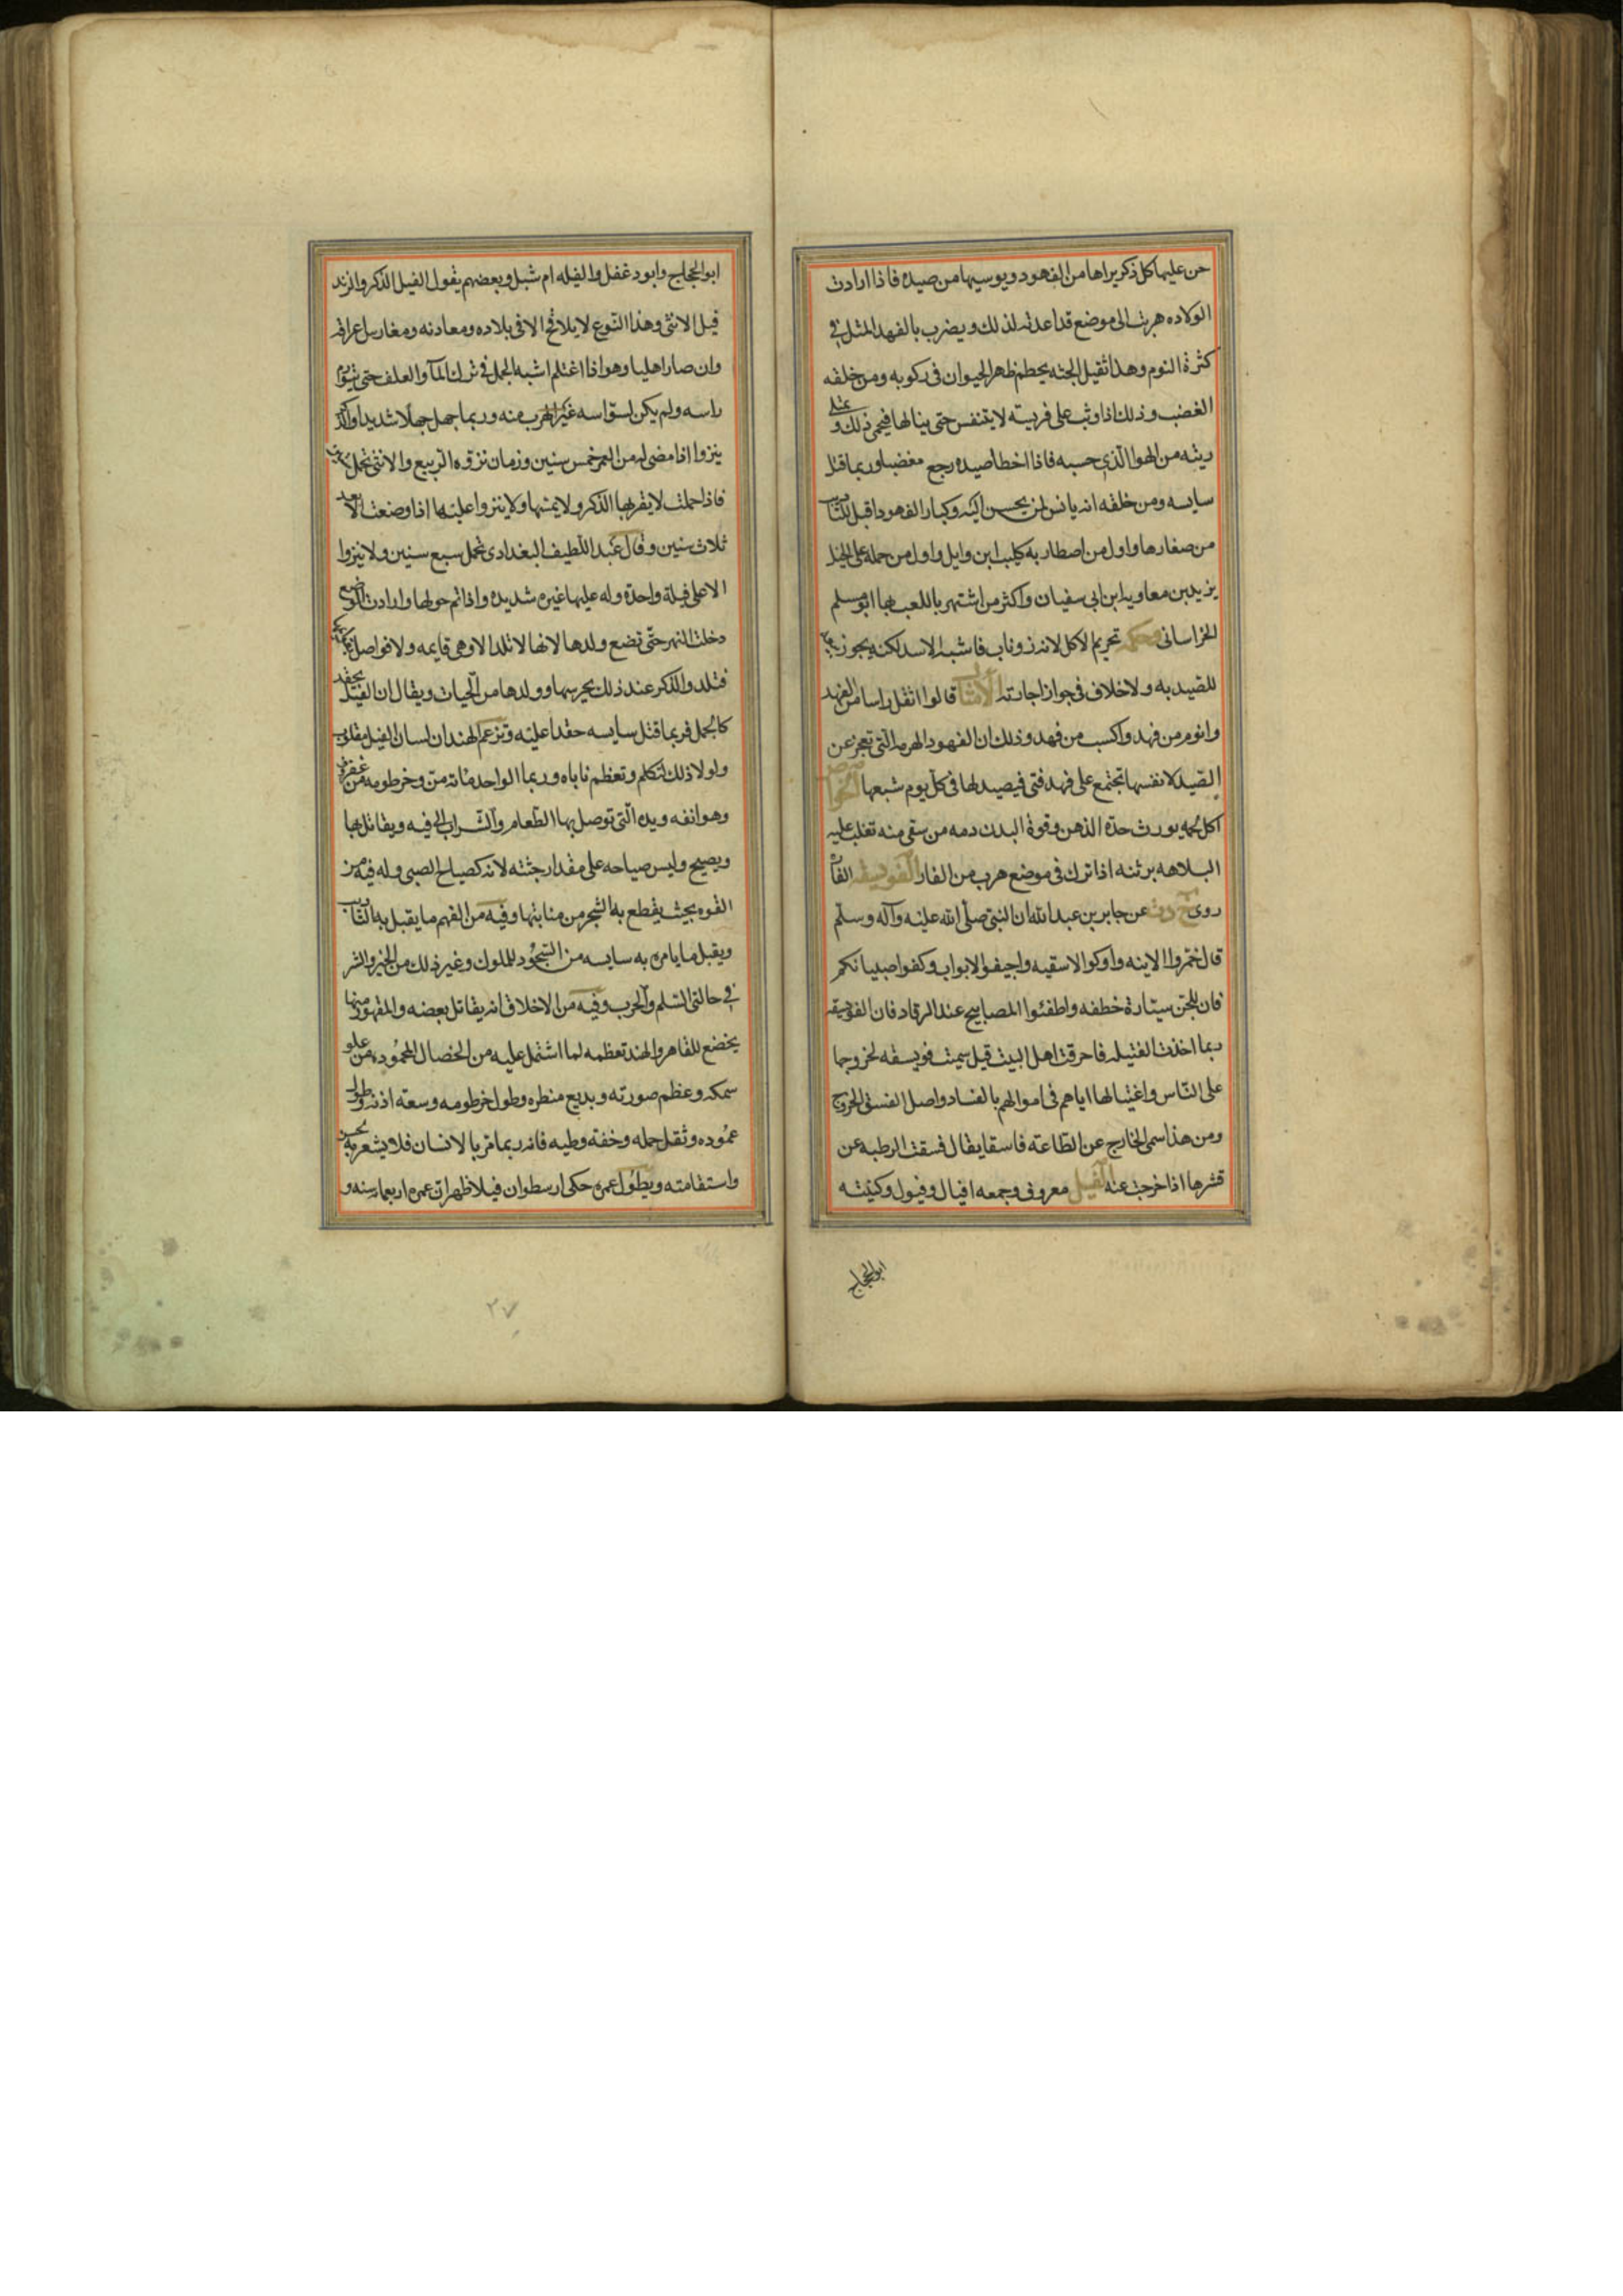 حن عليها كل ذكر يراها من الفهود ويوسيها من صيده فاذا ارادت
الولاده هربت الى موضع قد اعدته لذلك ويضرب بالفهد المثل في
كثرة النوم وهذا ثقيل الجثه يحطم ظهر الحيوان في ركوبه ومن خلقه
الغضب وذلك اذا وثب على فريسته لا يتنفس حتى ينالها فيحمى ذلك و
ريته من الهوا الذي حبسه فاذا اخطا صيده رجع مغضبا وربما قتل
سايسه ومن خلقه انه يانس لمن يحسن اليه وكبار الفهود اقبل للتاديب
من صغارها واول من اصطاد به كليب ابن وايل واول من حمله على الخيل
يزيد بن معاويه ابن ابى سفيان واكثر من اشتهر باللعب بها ابو مسلم
الخراسانى وحكمه تحريم الاكل لانه ذو ناب فاشبه الاسد لكنه يجوز
للصيد به ولا خلاف في جواز اجارته الامثال قالوا اثقل راسا من الفهد
وانوم من فهد واكسب من فهد وذلك ان الفهود الهرمه التى تعجز عن
الصيد لانفسها تجتمع على فهد فتى فيصيد لها في كل يوم شبعها الخواص
اكل لحمه يورث حدة الذهن وقوة البدن دمه من سقى منه تغلب عليه
البلاهه برثنه اذا ترك فى موضع هرب من الفار الفويسقه الفاره
روى عن جابر بن عبد الله ان النبى صلى الله عليه وآله وسلم
قال خمروا الاينه واوكوا الاسقيه واجيفوا الابواب وكفوا صبيانكم
فان للجن سيتارة خطفه واطفئوا المصابيح عند الرقاد فان الفويسقه
ربما اخذت الفتيله فاحرقت اهل البيت قيل سميت فويسقه لخروجها
على الناس واغتيالها اياهم فى اموالهم بالفساد واصل الفسق الخروج
ومن هذا سمى الخارج عن الطاعته فاسقا يقال فسقت الرطبه عن
قشرها اذا خرجت عنه الفيل معروف وجمعه افيال وفيول وكنيته
ابو الحجاج
ابو الحجاج وابو دغفل والفيله ام شبل وبعضهم يقول الفيل الذكر والزند
فيل الانثى وهذا النوع لا يلاقح الا فى بلاده ومعادنه ومغارس اعراقه
وان صار اهليا وهو اذا اغتلم اشبه الجمل فى ترك المآ والعلف حتى يتورم
راسه ولم يكن لسواسه غير الهرب منه وربما جهل جهلا شديدا والذكر
ينزوا اذا مضى له من العمر خمس سنين وزمان نزوه الربيع والانثى تحمل
فاذا حملت لا يقربها الذكر ولا يمسها ولا ينزوا عليها اذا وضعت الا بعد
ثلاث سنين وقال عبد اللطيف البغدادى تحمل سبع سنين ولا ينزوا
الا على فيلة واحدة وله عليها غيره شديده واذا تم حولها وارادت الوضع
دخلت النهر حتى تضع ولدها لانها لا تلد الا وهى قايمه ولا فواصل
فتلد والذكر عند ذلك يحرسها وولدها من الحيات ويقال ان الفيل يحقد
كالجمل فربما قتل سايسه حقدا عليه وتزعم الهند ان لسان الفيل مقلوب
ولولا ذلك لتكلم وتعظم ناباه وربما الواحد مائة من وخرطومه من غضروف
وهو انفه ويده التى توصل بها الطعام والشراب الى فيه ويقاتل بها
ويصيح وليس صياحه على مقدار جثته لانه كصياح الصبى وله فيه من
القوه بحيث يقطع به الشجر من منابتها وفيه من الفهم ما يقبل به التاديب
ويقبل ما يامره به سايسه من السجود للملوك وغير ذلك من الخير والشر
فى حالتى السلم والحرب وفيه من الاخلاق انه يقاتل بعضه والمقهور منها
يخضع للقاهر والهند تعظمه لما اشتمل عليه من الخصال المحموده من علو
سمكه وعظم صورته وبديع منظره وطول خرطومه وسعة اذنه وطول
عموده وثقل حمله وخفة وطيه فانه ربما مر بالانسان فلا يشعر به لحسن
واستقامته ويطول عمره حكى ارسطو ان فيلا ظهر ان عمره اربعمايه سنه و
٢٧